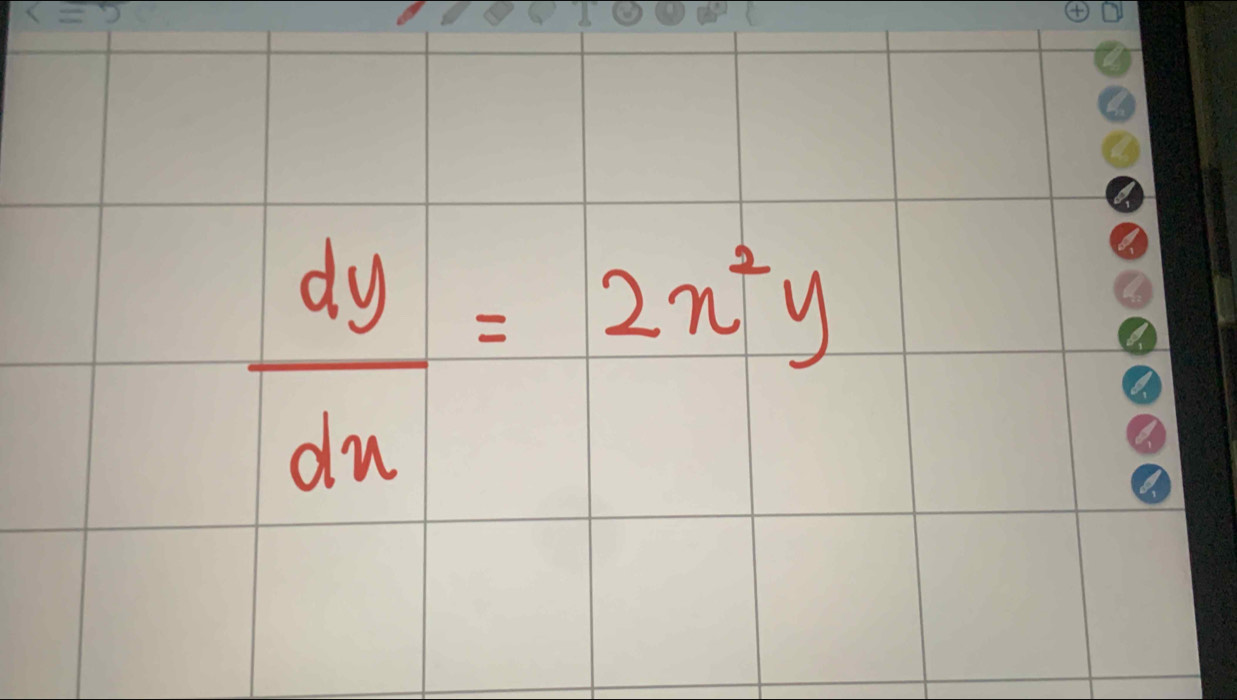 dy/dx = 2x²y